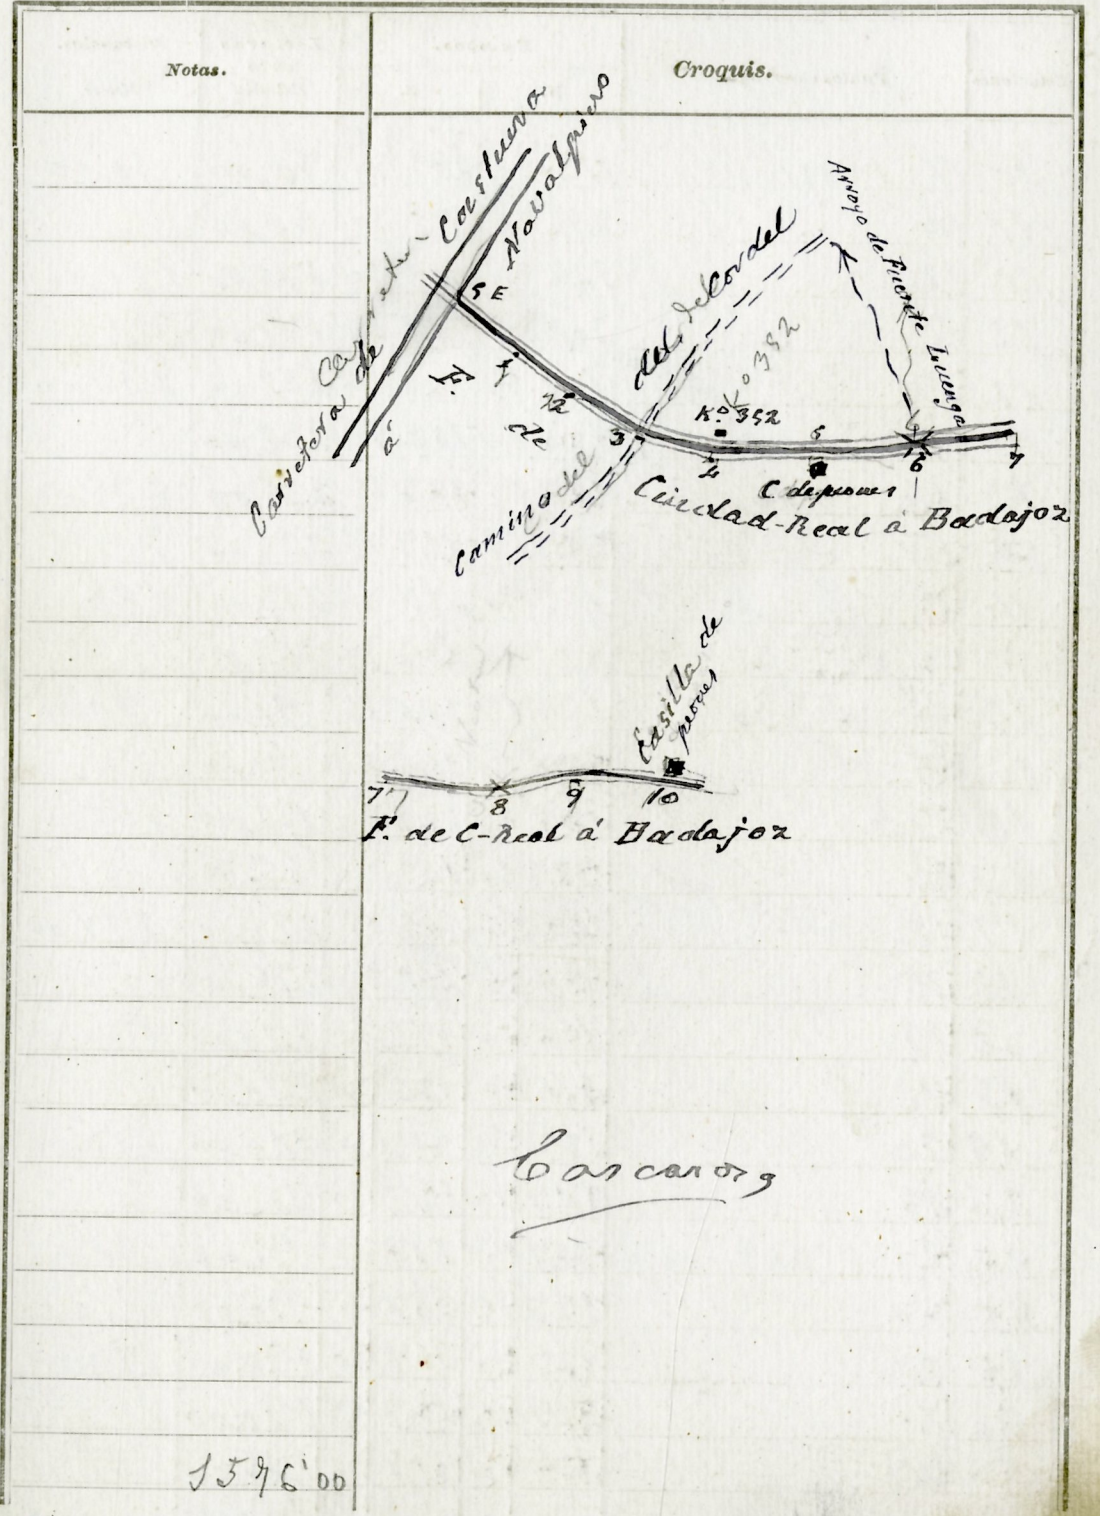 Notas.
Croquis.
Carretera de Castuera
á Navalpino
5 E
F. de Ciudad-Real á Badajoz
1
2
3
Camino del del Cordel
Kº 352
Kº 352
4
5
C de peones
6
7
Arroyo de Fuente Luenga
Casilla de
peones
7
8
9
10
F. de C-Real á Badajoz
1576'00